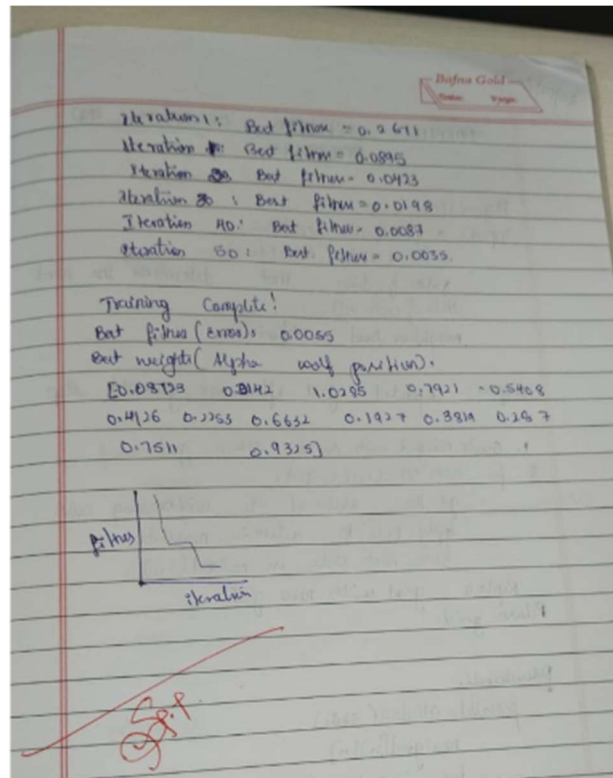 Bafna Gold
Iteration 1: Best fitness = 0.2671
Iteration : Best fitness = 0.0895
Iteration 20 Best fitness = 0.0423
Iteration 30 : Best fitness = 0.0198
Iteration 40: Best fitness = 0.0087
Iteration 50: Best fitness = 0.0035.
Training Complete!
Best fitness (error): 0.0055
Best weights (Alpha wolf position).
1.0285 0.7921 -0.5408
0.4126 0.2253 0.6632 0.1927 0.3819 0.287
0.7511 0.9325]
fitness
iteration